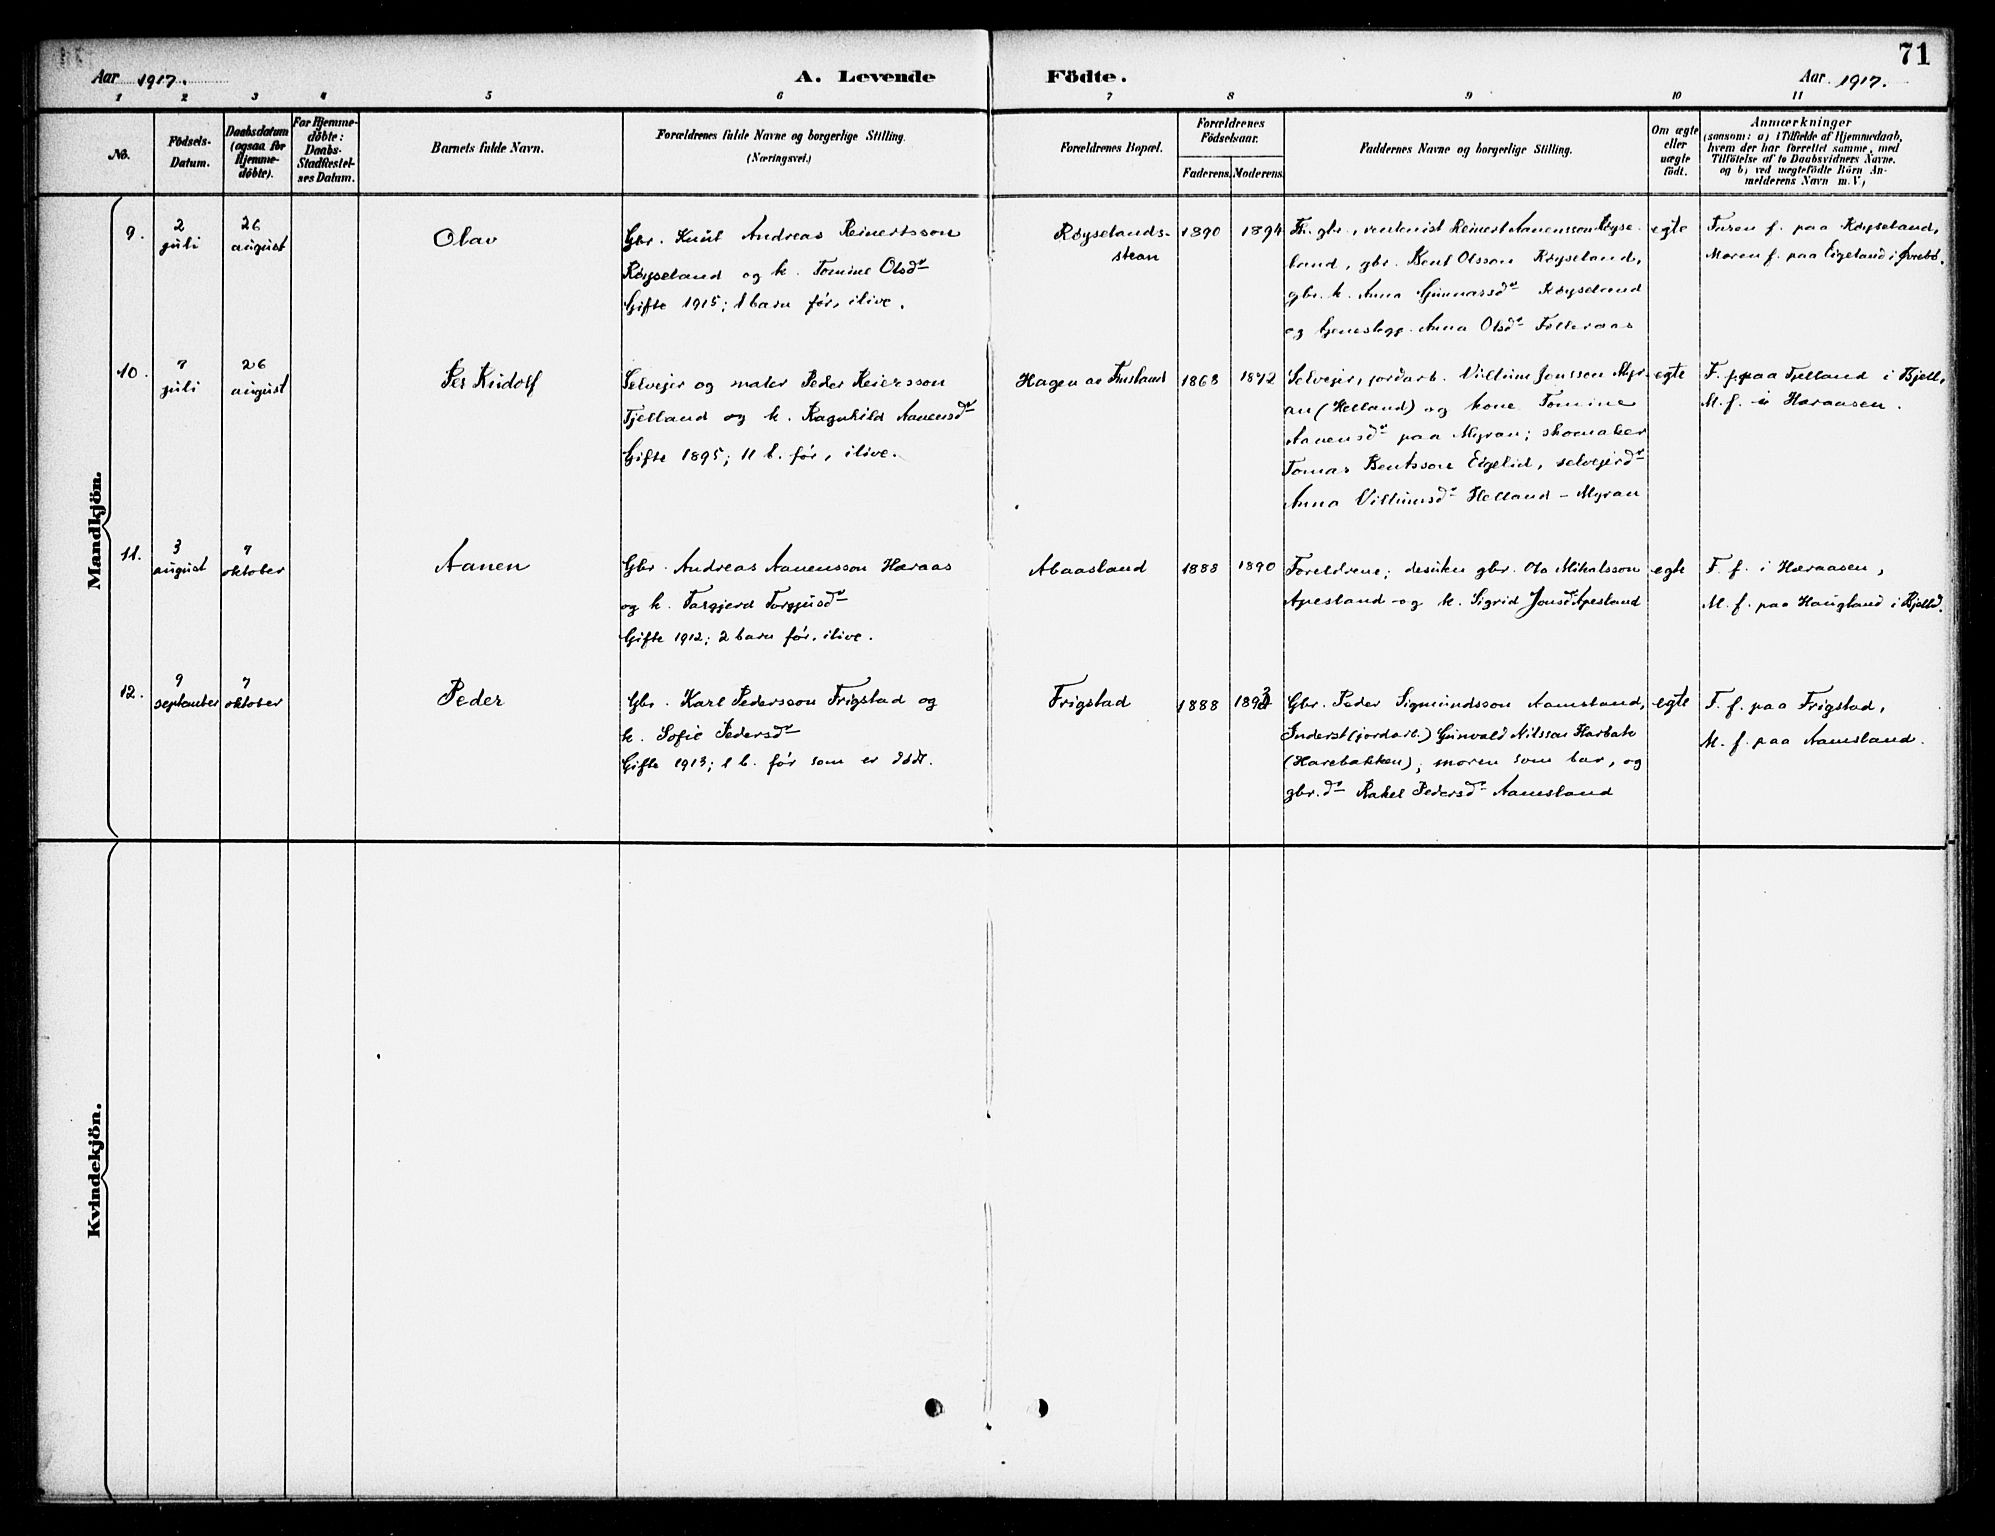 71
Aar 1917.
A. Levende Födte.
Aar 1917.
1 2 3 4 5 6 7 8 9 10 11
No.
Födsels-
Datum.
Daabsdatum
(ogsaa for
Hjemme-
döbte).
For Hjemme-
döbte:
Daabs-
Stadfæstel-
ses Datum.
Barnets fulde Navn.
Forældrenes fulde Navne og borgerlige Stilling.
(Næringsvei.)
Forældrenes Bopæl.
Forældrenes
Födselsaar.
Faderens. Moderens.
Faddernes Navne og borgerlige Stilling.
Om ægte
eller
uægte
födt.
Anmærkninger
(saasom: a) i Tilfælde af Hjemmedaab,
hvem der har forrettet samme, med
Tilföielse af to Daabsvidners Navne.
og b) ved uægtefödte Börn An-
melderens Navn m. V.)
Mandkjön.
9.
2
juli
26
august
Olav
Gbr. Knut Andreas Reinertsson
Røyseland og k. Tomine Olsdr
Gifte 1915; 1 barn før, ilive.
Røyselands-
stean
1890
1894
Fh. gbr., rentenist Reinert Aanensson Røyse-
land, gbr. Bent Olsson Røyseland,
gbr. k. Anna Gunnarsdr Røyseland
og tjenestegg. Anna Olsdr Felleraas
egte
Faren f. paa Røyseland,
Moren f. paa Eigeland i Øvrebø.
10.
7
juli
26
august
Per Rudolf
Selvejer og maler Peder Reiersson
Fjelland og k. Ragnhild Aanensdr
Gifte 1895; 11 b. før, ilive.
Hagen av Fusland
1868
1872
Selvejer, jordarb. Villum Jonsson Myr-
an (Helland) og kone Tomine
Aanensdr paa Myran; skomaker
Tomas Bentsson Eigelid, selvejerdr
Anna Villumsdr Helland - Myran
egte
F. f. paa Fjelland i Bjell.,
M. f. i Høraasen.
11.
3
august
7
oktober
Aanen
Gbr. Andreas Aanensson Høraas
og k. Targjerd Torgjusdr
Gifte 1912; 2 barn før, ilive.
Abaasland
1888
1890
Foreldrene; desuten gbr. Ola Mikalsson
Apesland og k. Sigrid Jonsdr Apesland
egte
F. f. i Høraasen,
M. f. paa Haugland i Bjelld.
12.
9
september
7
oktober
Peder
Gbr. Karl Pedersson Frigstad og
k. Sofie Pedersdr
Gifte 1913; 1 b. før som er død.
Frigstad
1888
1893
Gbr. Peder Sigmundsson Aamsland,
Inderst (jordarb.) Gunvald Nilsson Harbak
(Harebakken); moren som bar, og
gbr.dr Rakel Pedersdr Aamsland
egte
F. f. paa Frigstad,
M. f. paa Aamsland.
Kvindekjön.